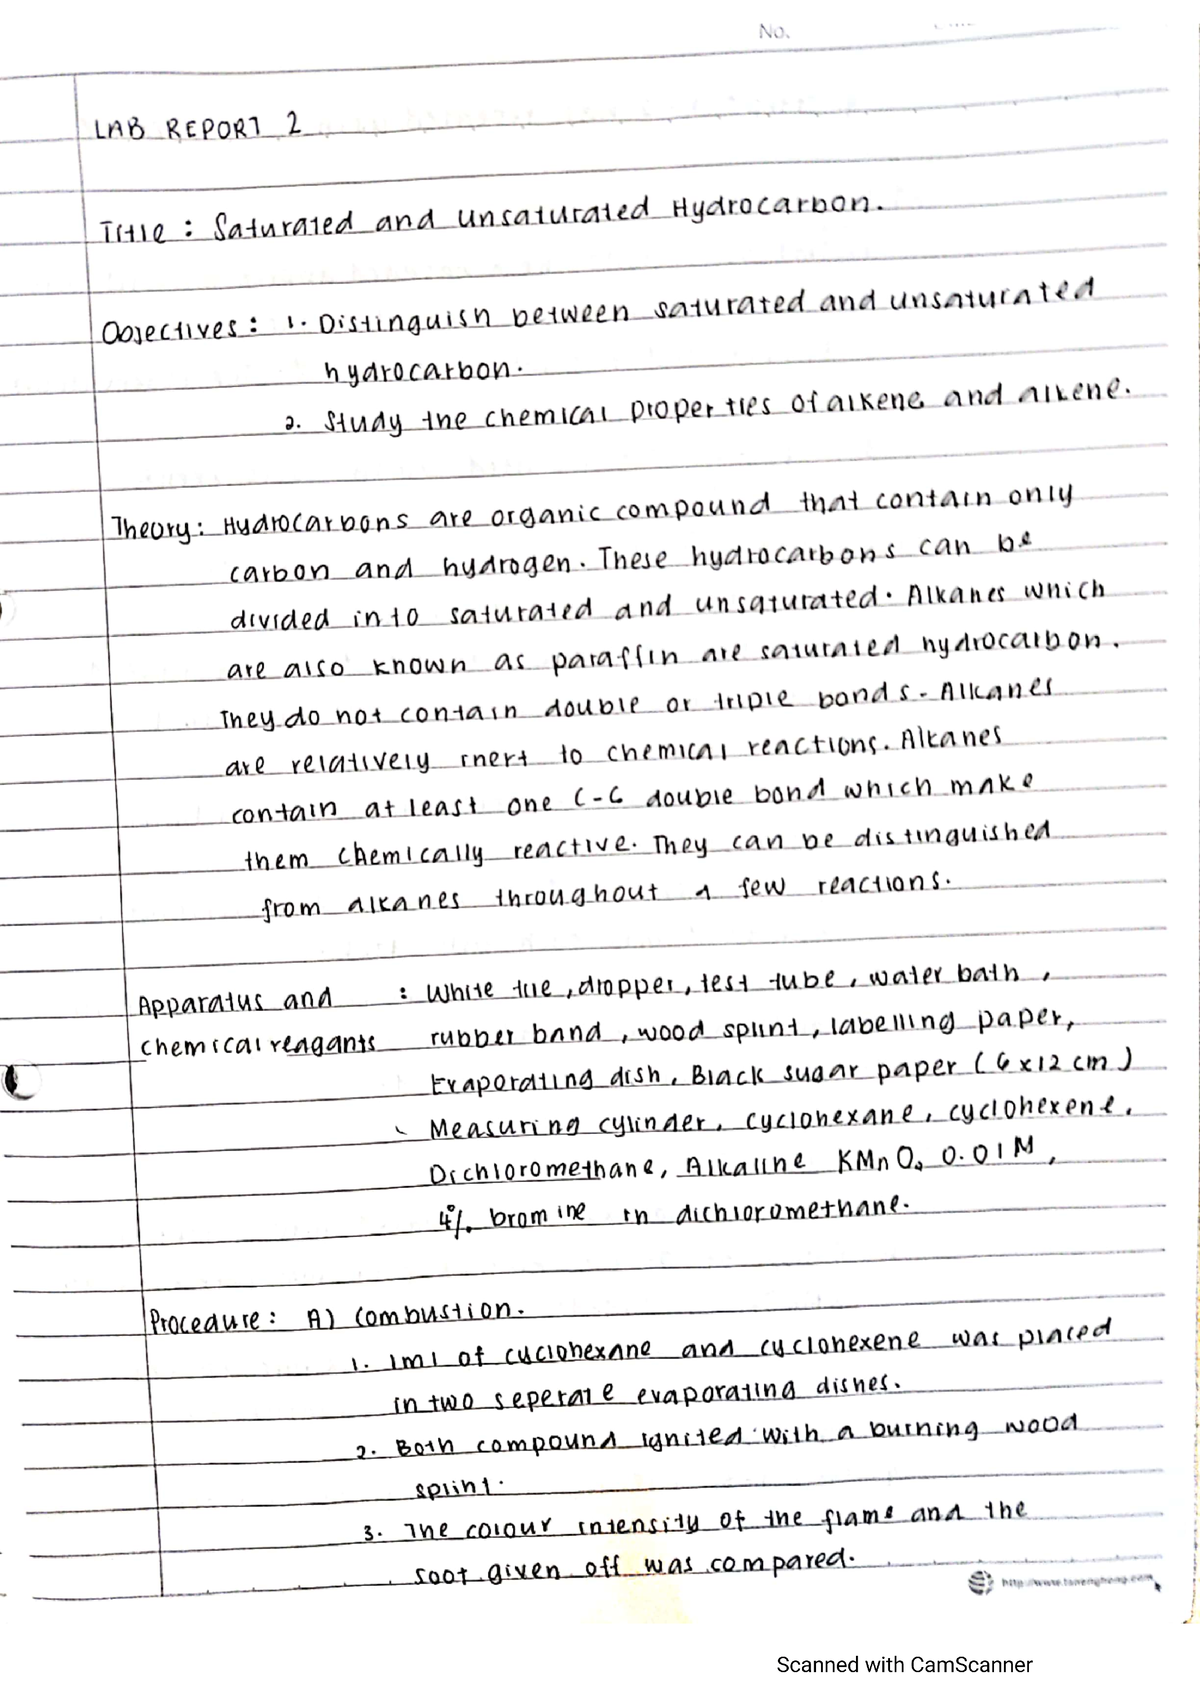 No.
LAB REPORT 2
Title : Saturated and Unsaturated Hydrocarbon.
Objectives : 1. Distinguish between saturated and unsaturated
hydrocarbon.
2. Study the chemical properties of alkene and alkene.
Theory : Hydrocarbons are organic compound that contain only
carbon and hydrogen. These hydrocarbons can be
divided into saturated and unsaturated. Alkanes which
are also known as paraffin are saturated hydrocarbon.
They do not contain double or triple bonds. Alkanes
are relatively inert to chemical reactions. Alkanes
contain at least one C-C double bond which make
them chemically reactive. They can be distinguished
from alkanes throughout a few reactions.
Apparatus and : White tile, dropper, test tube, water bath,
chemical reagants rubber band, wood splint, labelling paper,
Evaporating dish, Black sugar paper (6 x 12 cm)
Measuring cylinder, cyclohexane, cyclohexene,
Dichloromethane, Alkaline KMnO4 0.01M,
4% bromine in dichloromethane.
Procedure : A) Combustion.
1. 1ml of cyclohexane and cyclohexene was placed
in two seperate evaporating dishes.
2. Both compound ignited with a burning wood
splint.
3. The colour intensity of the flame and the
soot given off was compared.
Scanned with CamScanner